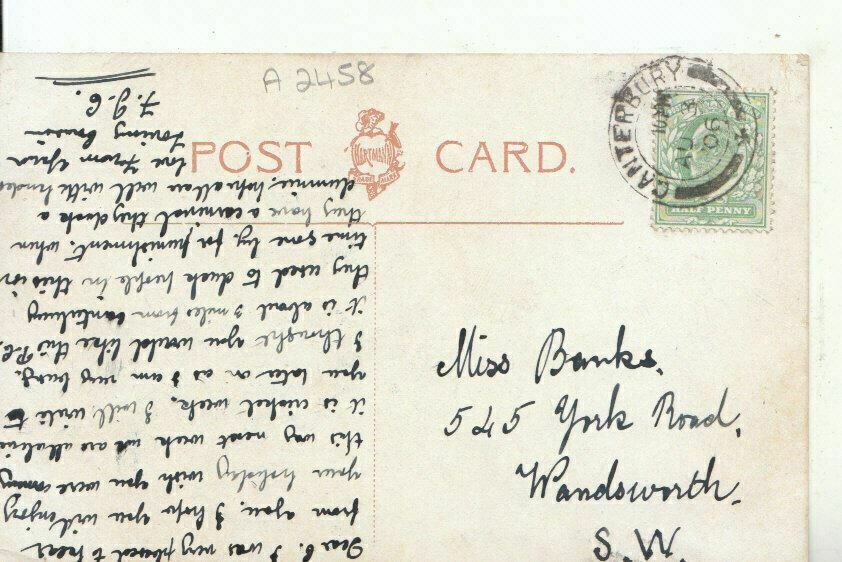 A 2458
POST CARD.
HARTMANN
TRADE MARK
CANTERBURY
10 PM
AU 3
05
HALF PENNY
Miss Banks.
545 York Road,
Wandsworth.
S.W.
Dear C. I was very pleased to hear
from you. I hope you will enjoy
your holiday wish you were coming
this way next week we are all alive
it is cricket week. I will write to
you later on as I am very busy.
I thought you would like this P.C.
it is about 3 miles from Canterbury
they used to duck people in this in
time gone by, for punishment, when
they have a carnival they duck a
dummie, hope all are well with kindest
love From Your
loving Cousin
F.J.C.